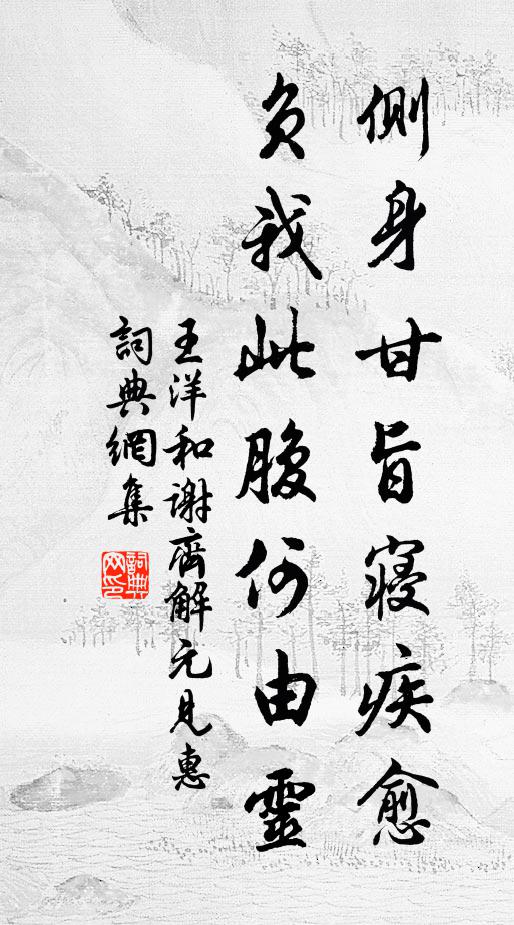 側身甘旨寝疾愈
負我此腹何由靈
王洋和谢齊解元見惠
詞典網集
詞典網印